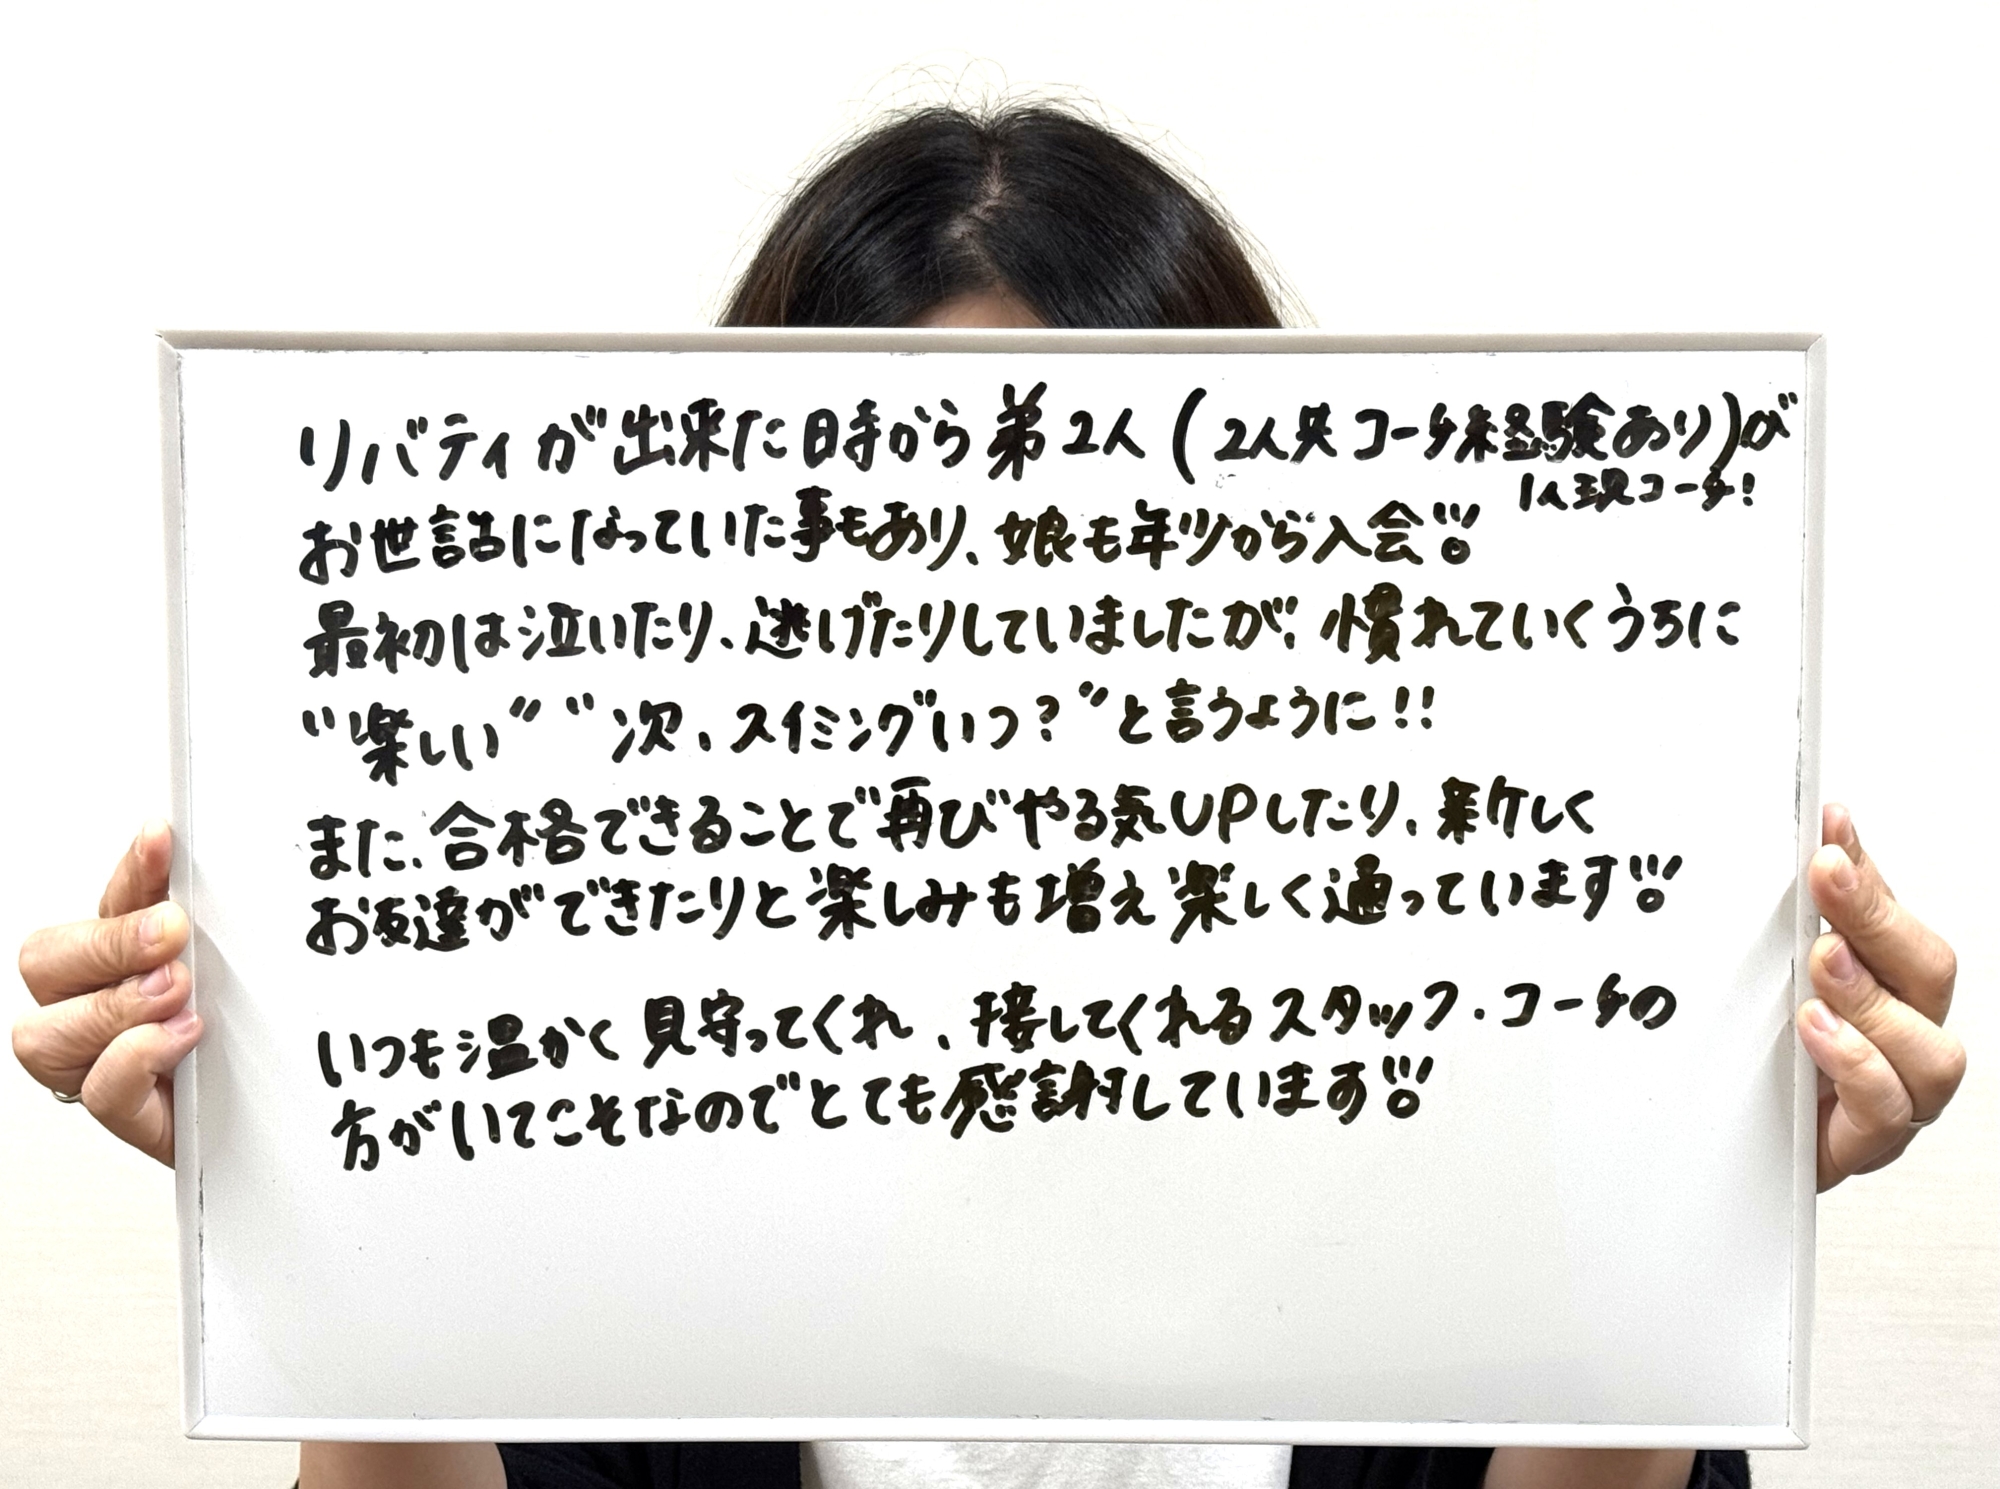 リバティが出来た時から弟2人(2人共コーチ経験あり)が
1人現コーチ!
お世話になっていた事もあり、娘も年少から入会!!
最初は泣いたり、逃げたりしていましたが、慣れていくうちに
"楽しい" "次、スイミングいつ?"と言うように!!
また、合格できることで再びやる気UPしたり、新しく
お友達ができたりと楽しみも増え楽しく通っています!!!
いつも温かく見守ってくれ、接してくれるスタッフ・コーチの
方がいてこそなのでとても感謝しています!!!